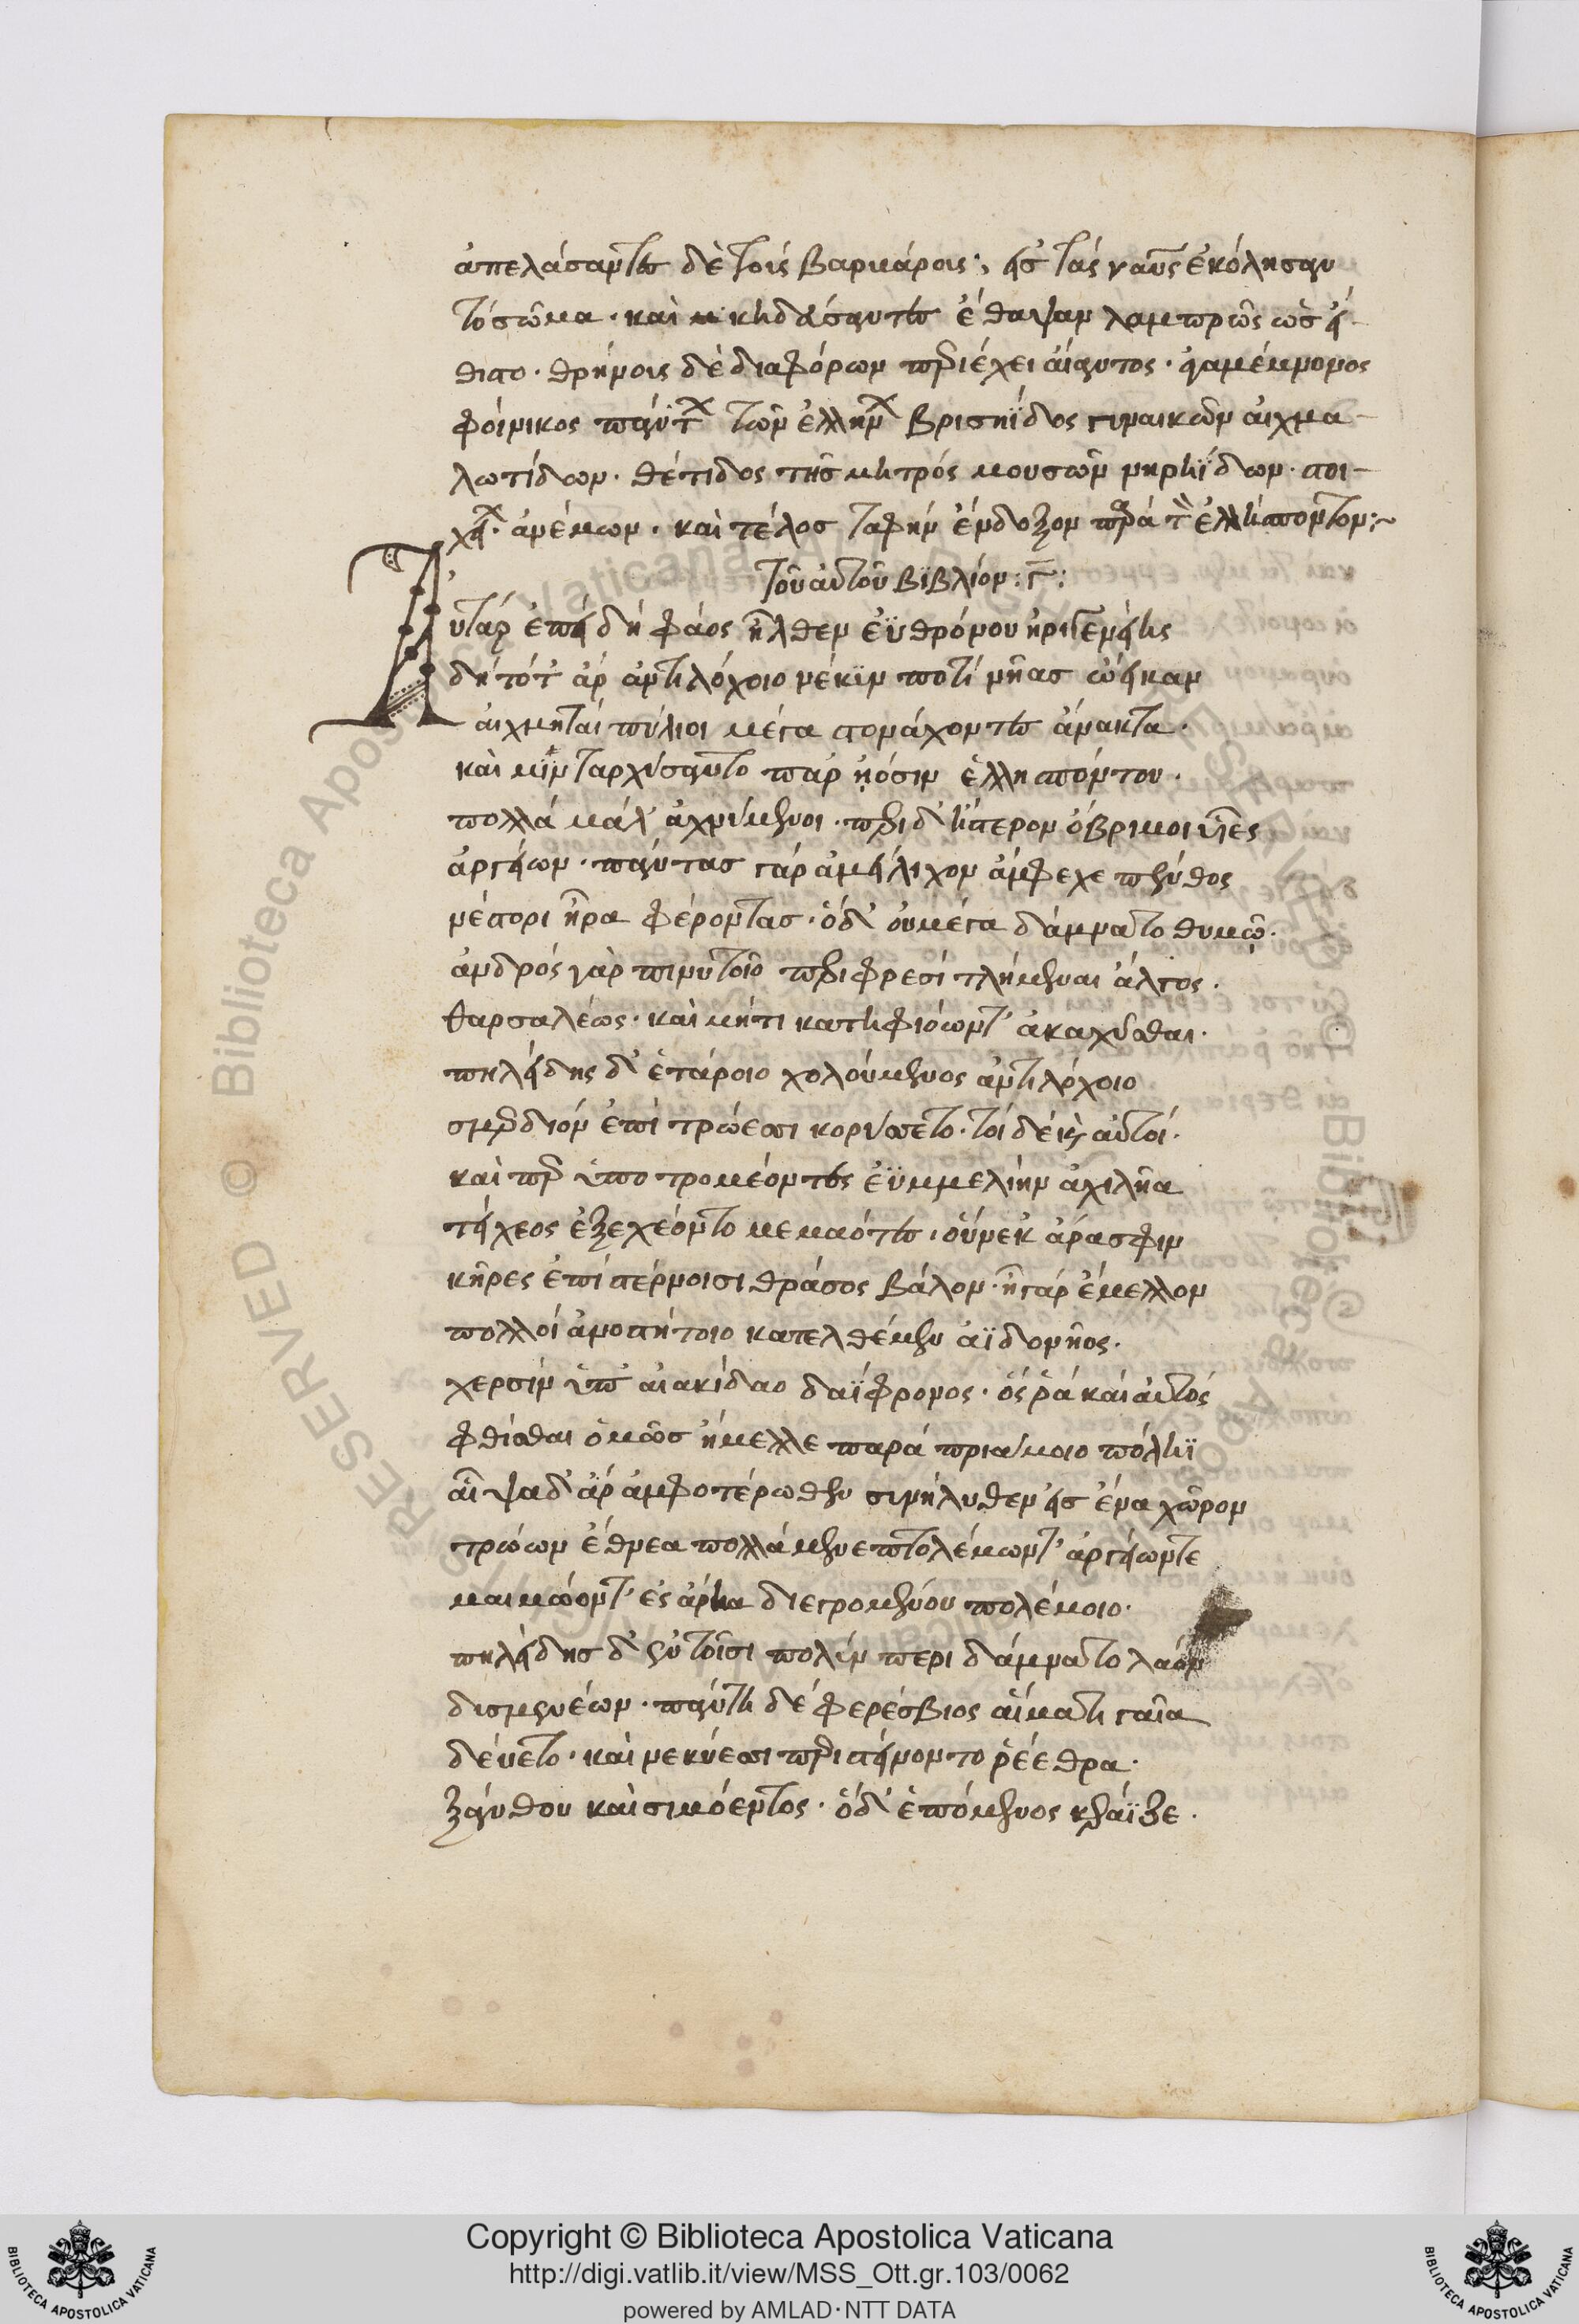 ἀπελάσαντες δὲ τοὶς βαρμάροις·, εἰς τὰς ναῦς ἐκόλησαν
τὸ σῶμα· καὶ κηδεύσαντες ἔθαψαν λαμπρῶς ὡς εἴ-
θιστο· θρήνοις δὲ διαφόρων περιέχει αἴαντος· ἀγαμέμνονος
φοίνικος πάντων τῶν ἑλλήνων βρισηΐδος γυναικῶν αἰχμα-
λωτίδων· θέτιδος τῆς μητρός μουσῶν νηρηΐδων· στοι-
χεί· ἀνέμων· καὶ τέλος ταφήν ἔνδοξον παρά τὸν ἑλλήσποντον:~
τοῦ αὐτοῦ βϊβλίον :Γ:
Αὐτάρ ἐπεί δή φάος ἦλθεν ἐϋθρόνου ἠριγενείης
δή τότ' ἄρ ἀντιλόχοιο νέκϊν ποτί νῆας ἔνεικαν
αἰχμηταί πύλιοι μέγα στονάχοντες ἄνακτα·
καὶ μϊν ταρχύσαντο παρ ᾐόσιν ἑλλησπόντου·
πολλά μάλ' ἀχνύμενοι· περὶ δ' ἥστενον ὄβριμοι υἷες
ἀργείων· πάντας γάρ ἀμείλιχον ἄμφεχε πένθος
νέστορι ἦρα φέροντας· ὁ δ' οὐ μέγα δάμνατο θυμῷ·
ἀνδρός γὰρ πινυτοῖο περὶ φρεσί τλήμεναι ἄλγος·
θαρσαλέως· καὶ μήτι κατηφιόωντ' ἀκαχῦσθαι·
πηλείδης δ' ἑτάροιο χολούμενος ἀντιλόχοιο
σμερδνόν ἐπὶ τρώεσσι κορύσσετο· τοί δέ καὶ αὐτοί·
καὶ περ ὑπο τρομέοντες ἐϋμμελίην ἀχιλῆα
τείχεος ἐξεχέοντο μεμαότες· οὕνεκ' ἄρα σφιν
κῆρες ἐπί στέρνοισι θράσος βάλον· ἦ γάρ ἔμελλον
πολλοί ἀνοστήτοιο κατελθέμεν ἀϊδονῆος·
χερσίν ὑπ' αἰακίδαο δαΐφρονος· ὅς ῥά καί αὐτός
φθίσθαι ὁμῶς ἤμελλε παρά πριάμοιο πόληϊ
αἶψα δ' ἄρ ἀμφοτέρωθεν συνήλυθεν εἰς ἕνα χῶρον
τρώων ἔθνεα πολλά μενεπτολέμων τ' ἀργείων τε
μαιμώοντ' ἐς ἄρηα διεγρομένου πολέμοιο·
πηλείδης δ' ἐν τοῖσι πολύν περι δάμνατο λαόν
δυσμενέων· πάντῃ δέ φερέσβιος αἵματι γαῖα
δεύετο· καὶ νεκύεσσι περι στείνοντο ῥέεθρα·
ξάνθου καὶ σιμόεντος· ὁ δ' ἑπόμενος κεράϊζε·
Copyright © Biblioteca Apostolica Vaticana
http://digi.vatlib.it/view/MSS_Ott.gr.103/0062
powered by AMLAD·NTT DATA